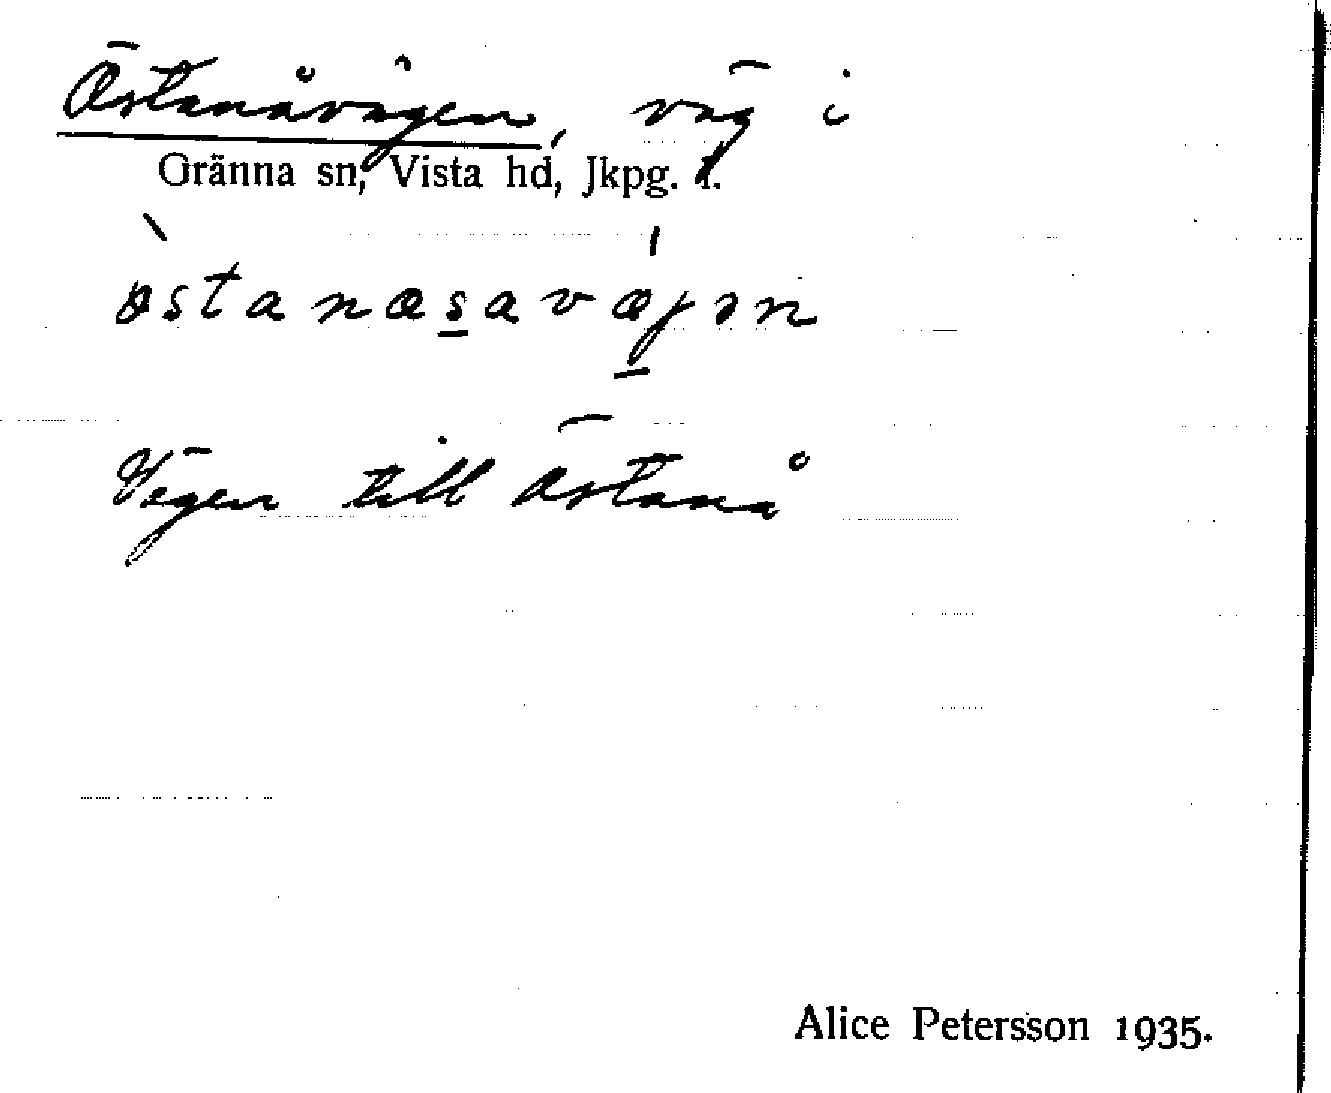 Östanåvägen, väg i
Gränna sn, Vista hd, Jkpg. l.
Vägen till Östanå
Alice Petersson 1935.